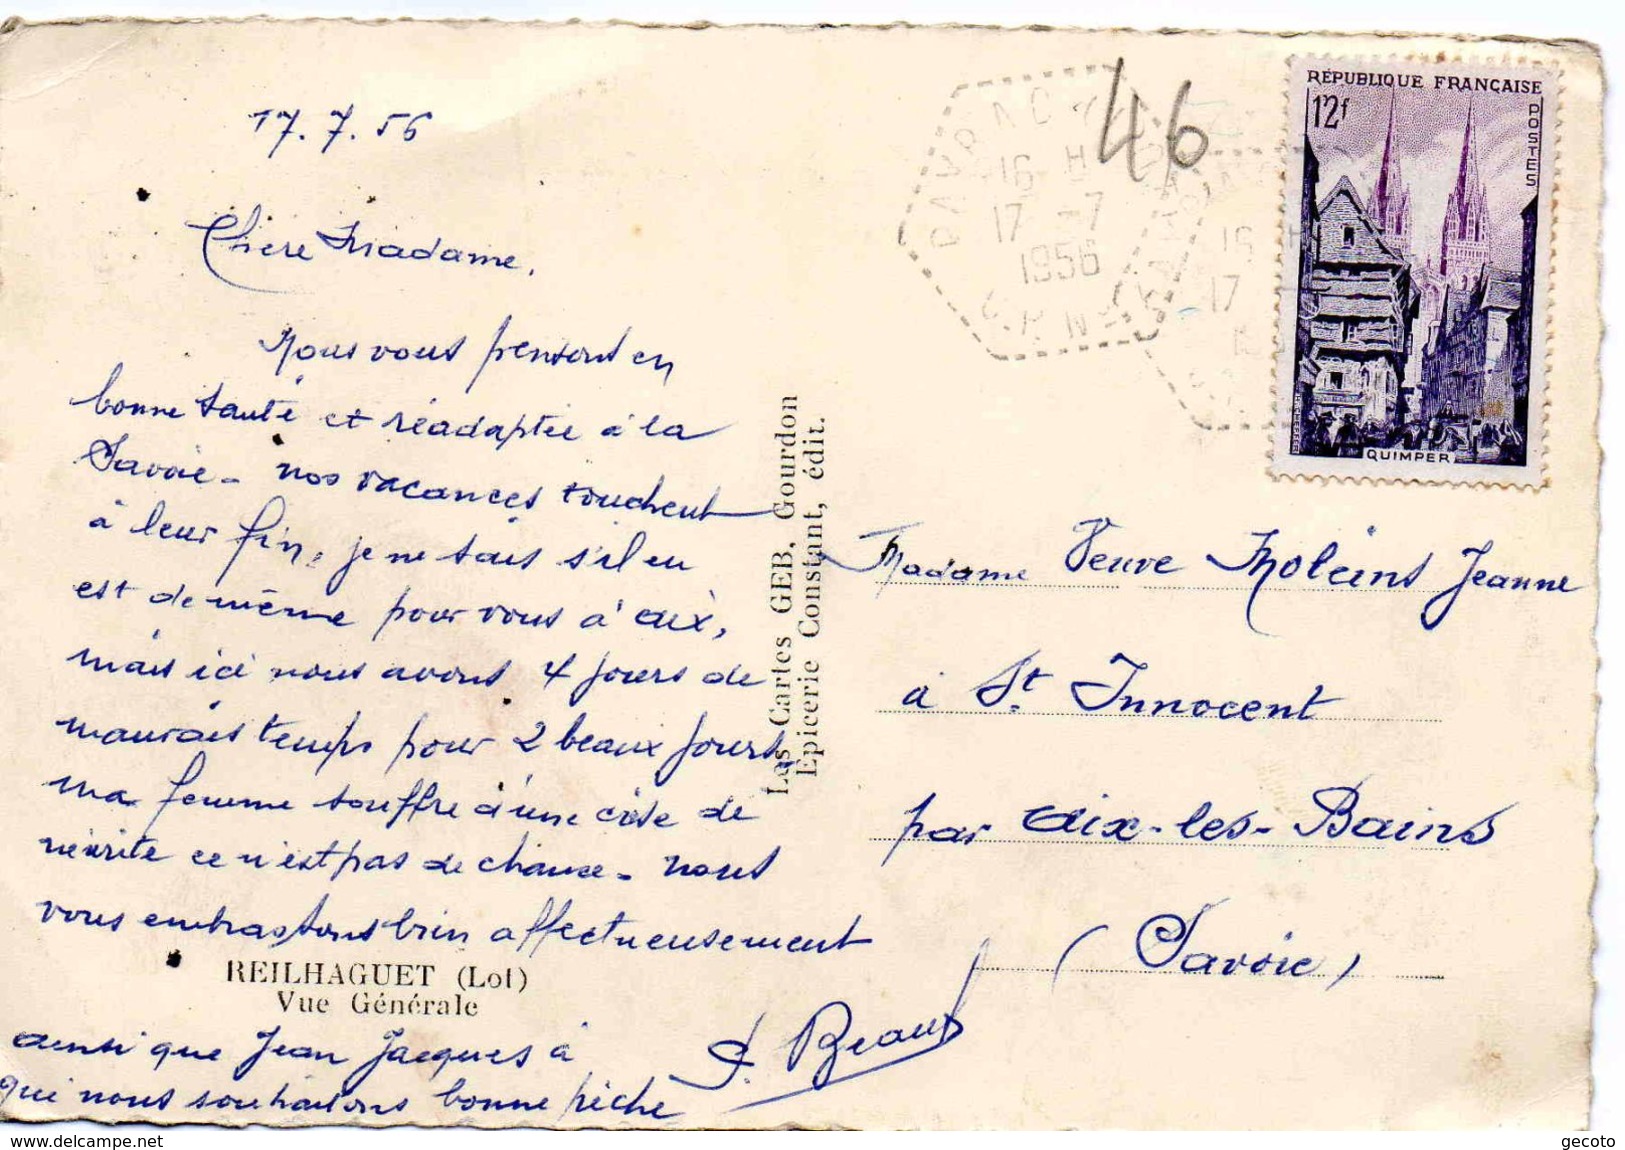 17.7.56
Chère Madame,
Nous vous pensons en
bonne santé et réadaptée à la
Savoie - nos vacances touchent
à leur fin, je ne sais s'il en
est de même pour vous à aix,
mais ici nous avons 4 jours de
mauvais temps pour 2 beaux jours
ma femme souffre d'une crise de
névrite ce n'est pas de chance - nous
vous embrassons bien affectueusement
REILHAGUET (Lot)
Vue Générale
ainsi que Jean Jacques à
qui nous souhaitons bonne pêche
Les Cartes GEB, Gourdon
Epicerie Constant, édit.
46
PAYRAC
16 H
17 -7
1956
16 H
17
RÉPUBLIQUE FRANÇAISE
12f
POSTES
QUIMPER
Madame Veuve Moleins Jeanne
à St. Innocent
par aix-les-Bains
(Savoie)
www.delcampe.net
gecoto